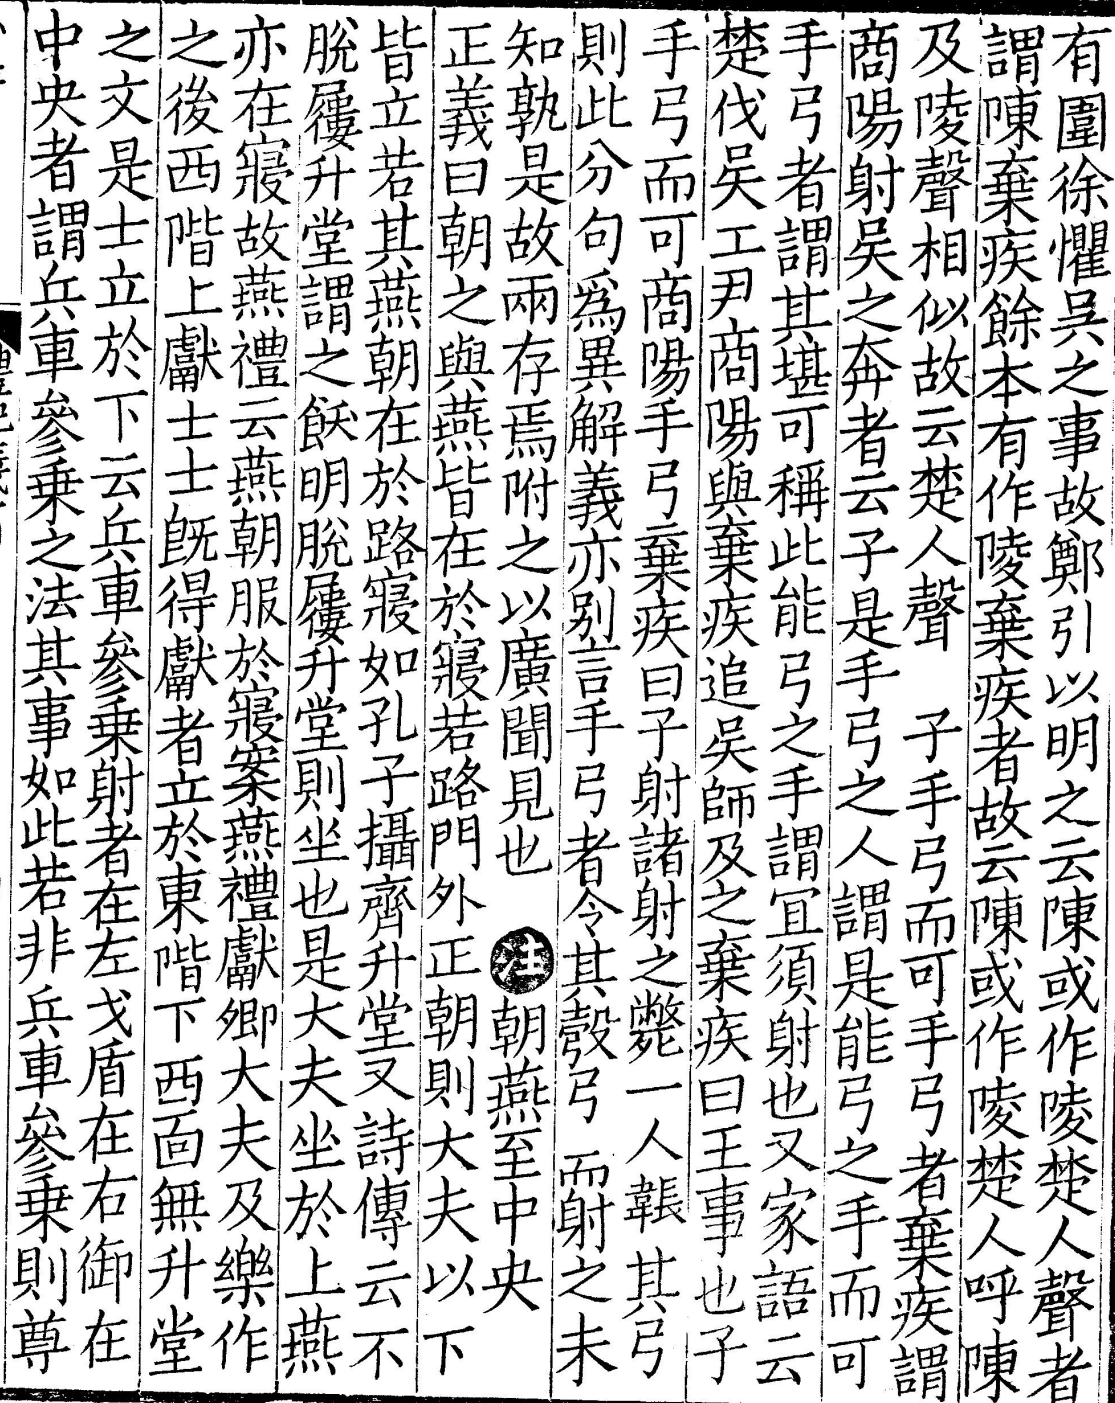 有圍徐懼吳之事故鄭引以明之云陳或作陵楚人聲者
謂陳棄疾餘本有作陵棄疾者故云陳或作陵楚人呼陳
及陵聲相似故云楚人聲 子手弓而可手弓者棄疾謂
商陽射吳之奔者云子是手弓之人謂是能弓之手而可
手弓者謂其堪可稱此能弓之手謂宜須射也又家語云
楚伐吳工尹商陽與棄疾追吳師及之棄疾曰王事也子
手弓而可商陽手弓棄疾曰子射諸射之斃一人韔其弓
則此分句爲異解義亦别言手弓者令其彀弓而射之未
知孰是故兩存焉附之以廣聞見也 注朝燕至中央
正義曰朝之與燕皆在於寢若路門外正朝則大夫以下
皆立若其燕朝在於路寢如孔子攝齊升堂又詩傳云不
脫屨升堂謂之飫明脫屨升堂則坐也是大夫坐於上燕
亦在寢故燕禮云燕朝服於寢案燕禮獻卿大夫及樂作
之後西階上獻士士旣得獻者立於東階下西面無升堂
之文是士立於下云兵車參乗射者在左戈盾在右御在
中央者謂兵車參乗之法其事如此若非兵車參乗則尊